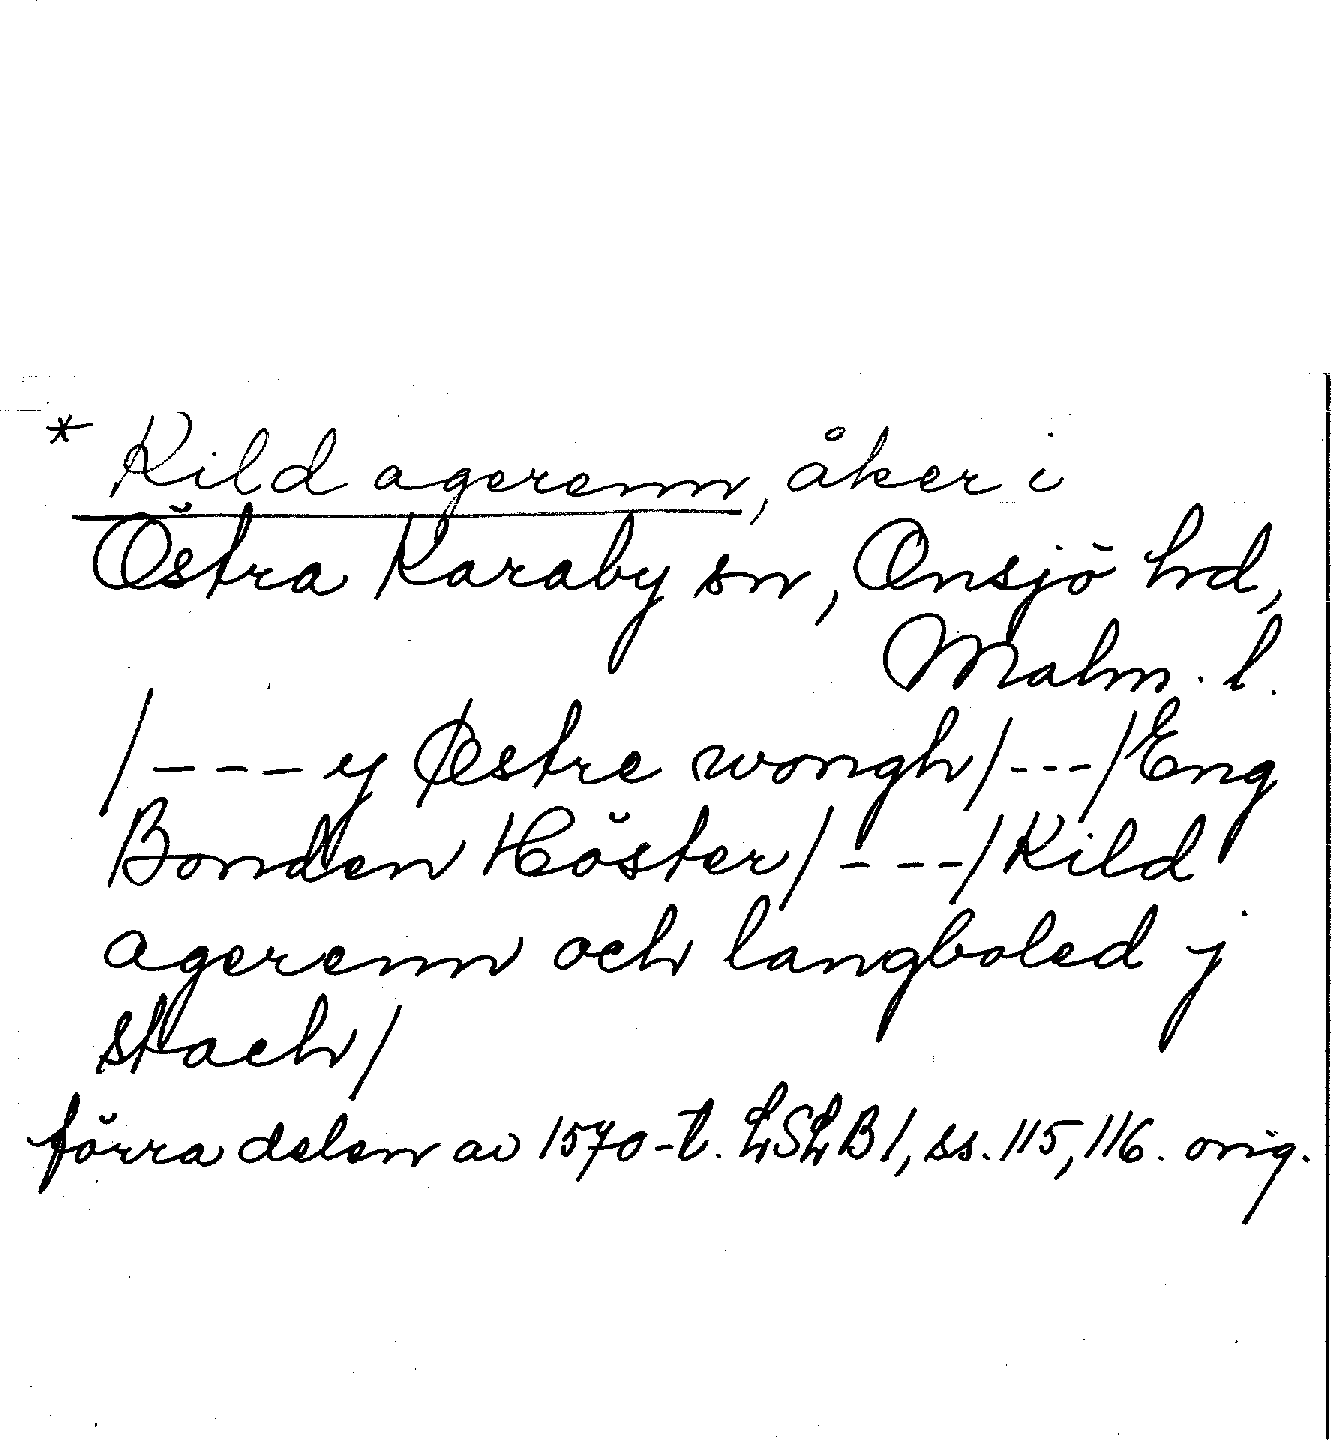 * Kild agerenn, åker i
Östra Karaby sn, Onsjö hd,
Malm. l.
/---y Østre wongh/---/Eng
Bonden Höster/---/Kild
agerenn och langboled j
stach/
förra delen av 1570-t. LSLB1, ss. 115, 116. orig.